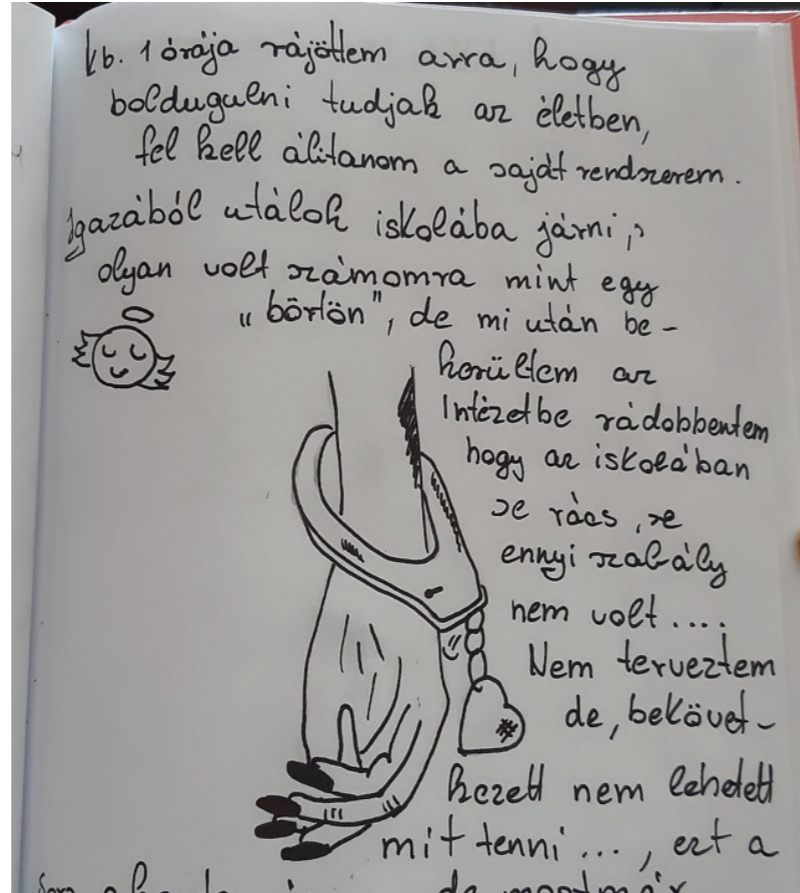 kb. 1 órája rájöttem arra, hogy
boldugulni tudjak az életben,
fel kell álitanom a saját rendszerem.
Igazából utálok iskolába járni,
olyan volt számomra mint egy
„börtön", de mi után be-
kerültem az
Intézetbe rádobbentem
hogy az iskolában
se rács, se
ennyi szabály
nem volt ....
Nem terveztem
de, bekövet-
kezett nem lehetett
mit tenni..., ezt a